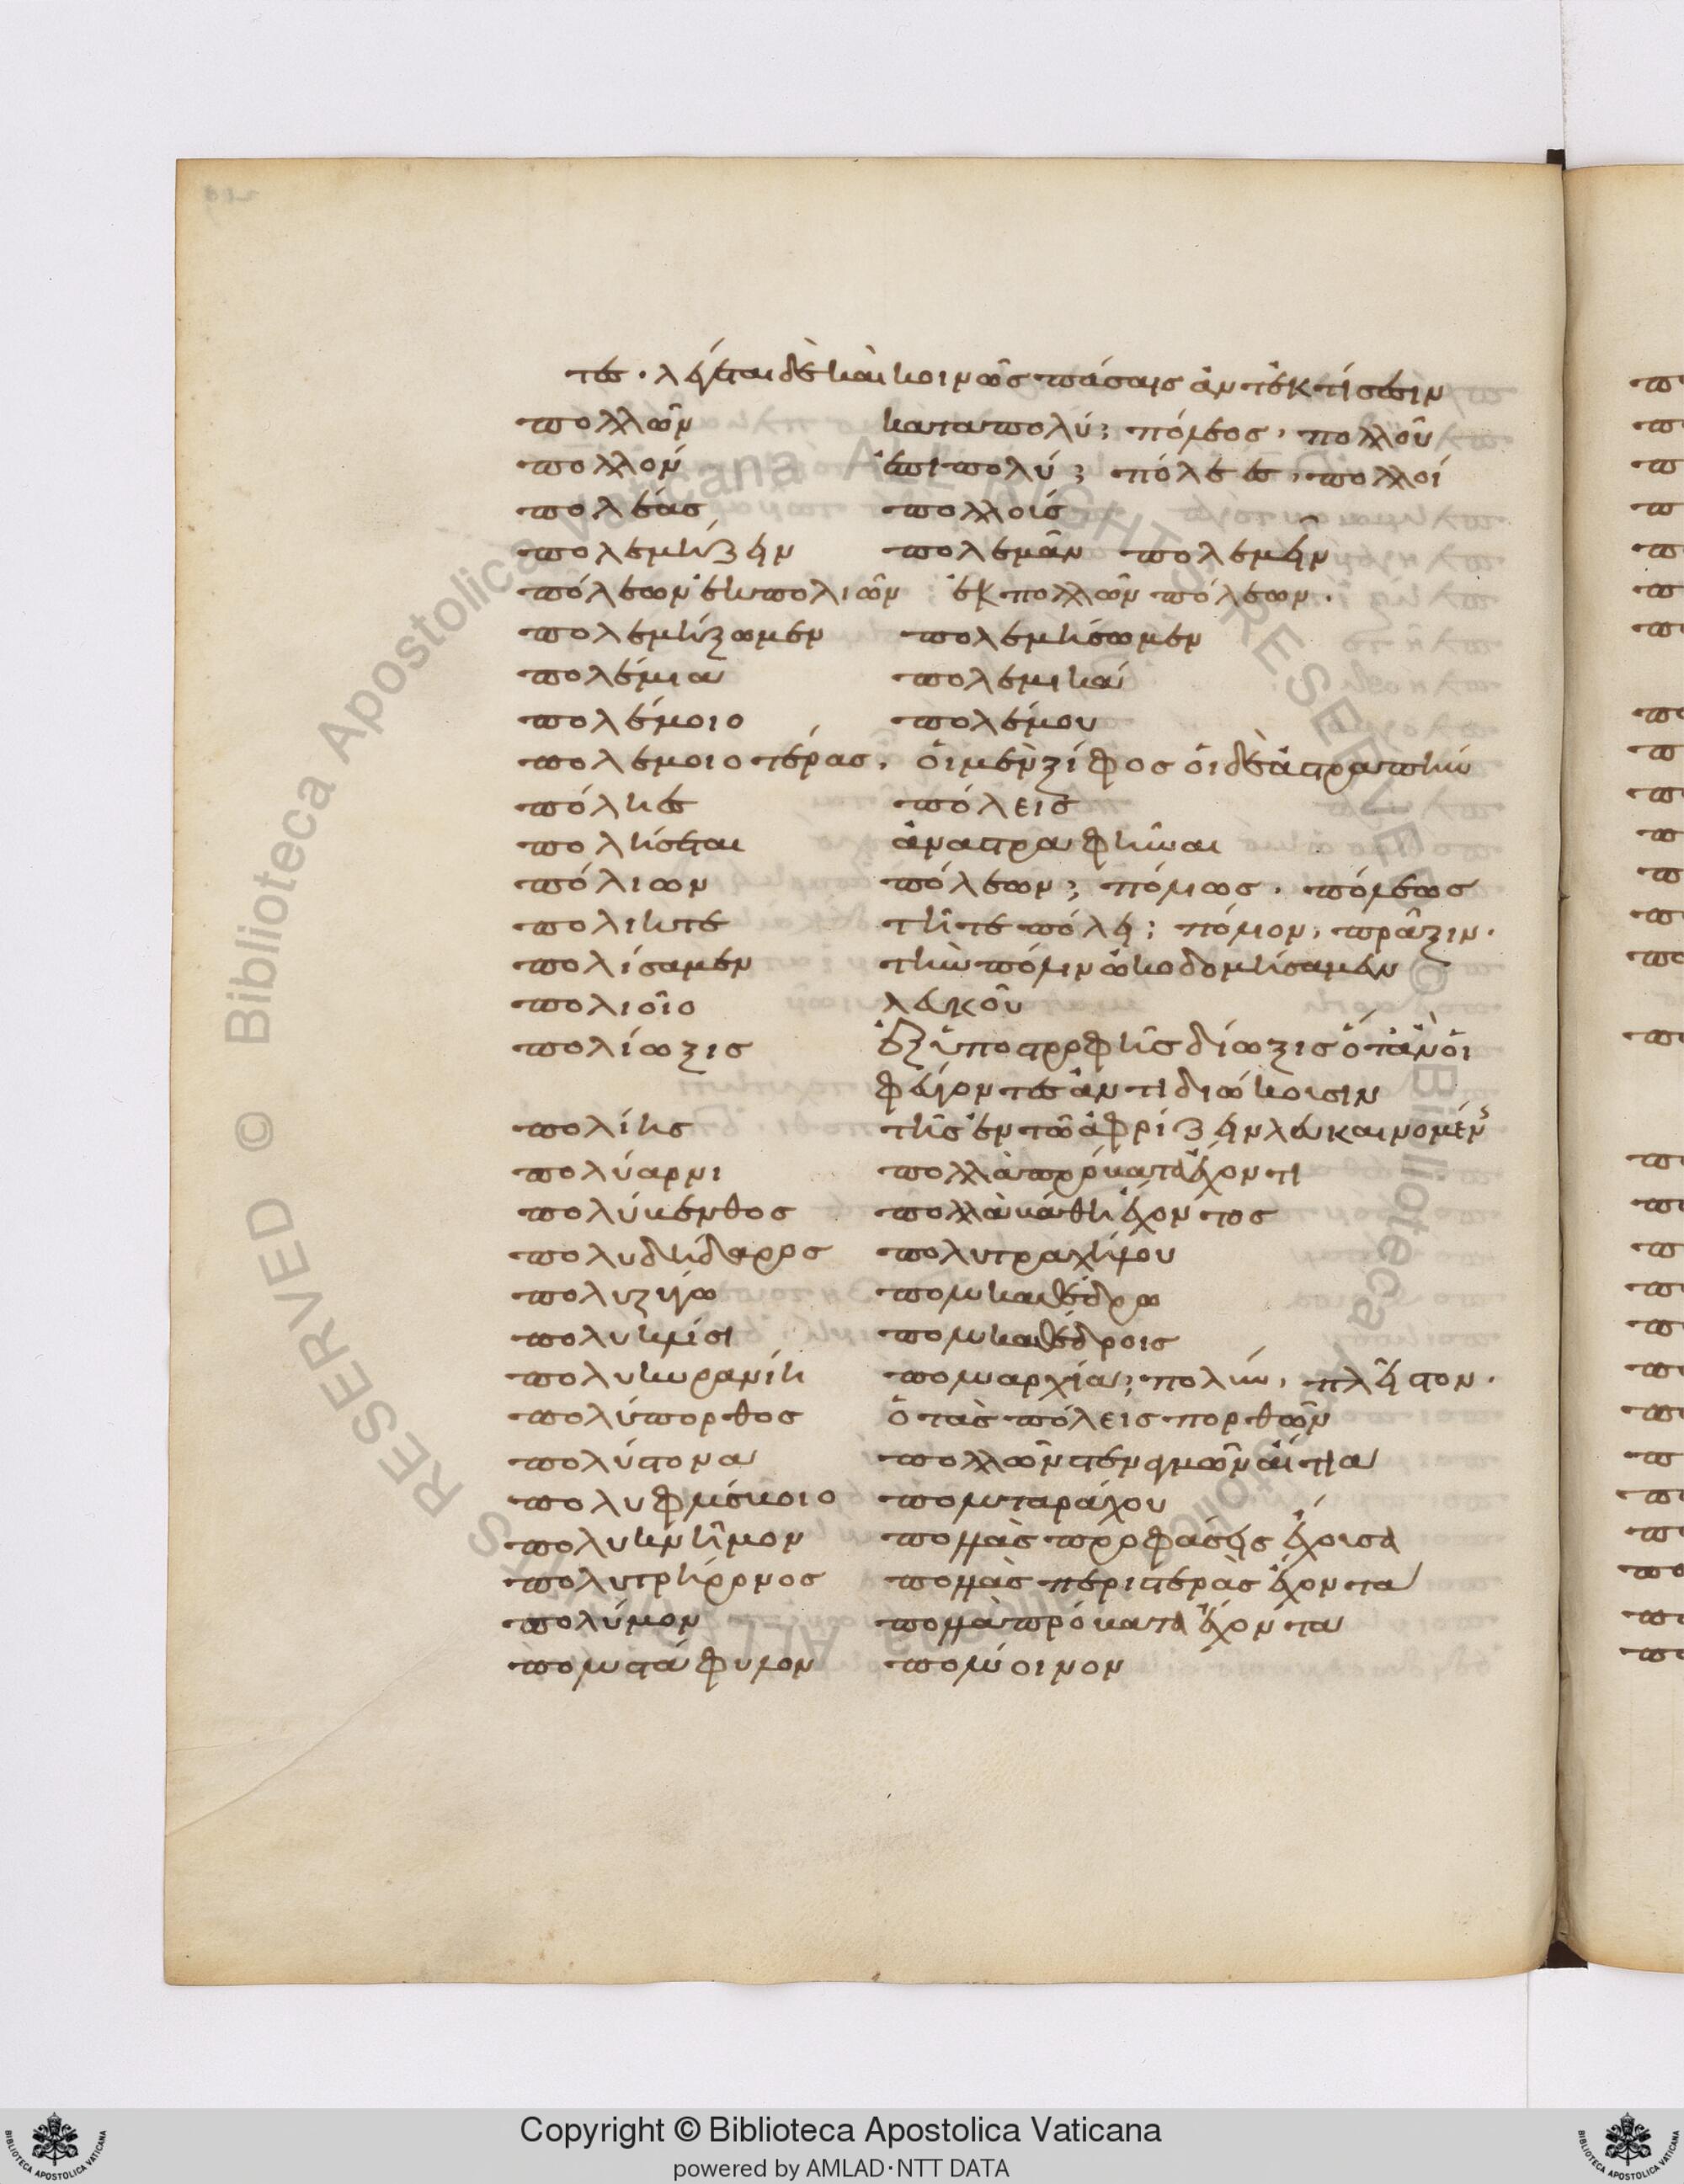 τες. λέγεται δὲ καὶ κοινῶς πάσαις ἀντέκτισιν
πολλῶν καταπολύ; πόλεος, πολλοῦ
πολλόν ἐπιπολύ; πόλεες, πολλοί
πολέας πολλοίς
πολεμήζειν πολεμᾶν πολεμεῖν
πόλεων ἐκπολιῶν; ἐκ πολλῶν πόλεων.
πολεμήζωμεν πολεμήσωμεν
πολέμια πολεμικά
πολέμοιο πολέμου
πολεμοιοτέρας, οἱ μὲν ξίφος οἱ δὲ ἀστραπήν
πόληες πόλεις
πολήσεται ἀναστραφῆναι
πόλιων πόλεων; πόλιως, πόλεως
πολιητε τῆτε πόλει; πόλιον, πρᾶξιν.
πολίσαμεν τὴν πόλιν ὠκοδομήσαμεν
πολιοῖο λευκοῦ
πολίωξις ἐξ ὑποστροφῆς δίωξις ὅταν οἱ
φεύγοντες ἀντιδιώκουσιν
πολίης τῆς ἐν τῶ ἀφρίζειν λευκαινομέν
πολύαρνι πολλὰ πρόβατα ἔχοντι
πολύκενθος πολλὰ κάθη ἔχοντος
πολυδήδαρος πολυτραχήλου
πολυζύγω πολυκαθέδρω
πολυκλϊσι πολυκαθέδροις
πολυκυρανίη πολυαρχία; πολήν, πλεῖστον.
πολύπορθος ὁ τὰς πόλεις πορθῶν
πολύστονα πολλῶν στεναγμῶν αἴτια
πολυφλύσκοιο πολυταράχου
πολυκνῆμον πολλὰς προφάσεις ἔχουσα
πολυτρήρονος πολλὰς περιστερὰς ἔχοντα
πολύμον πολλὰ πρόβατα ἔχοντα
πολυστάφυλον πολύοινον
Copyright © Biblioteca Apostolica Vaticana
powered by AMLAD·NTT DATA